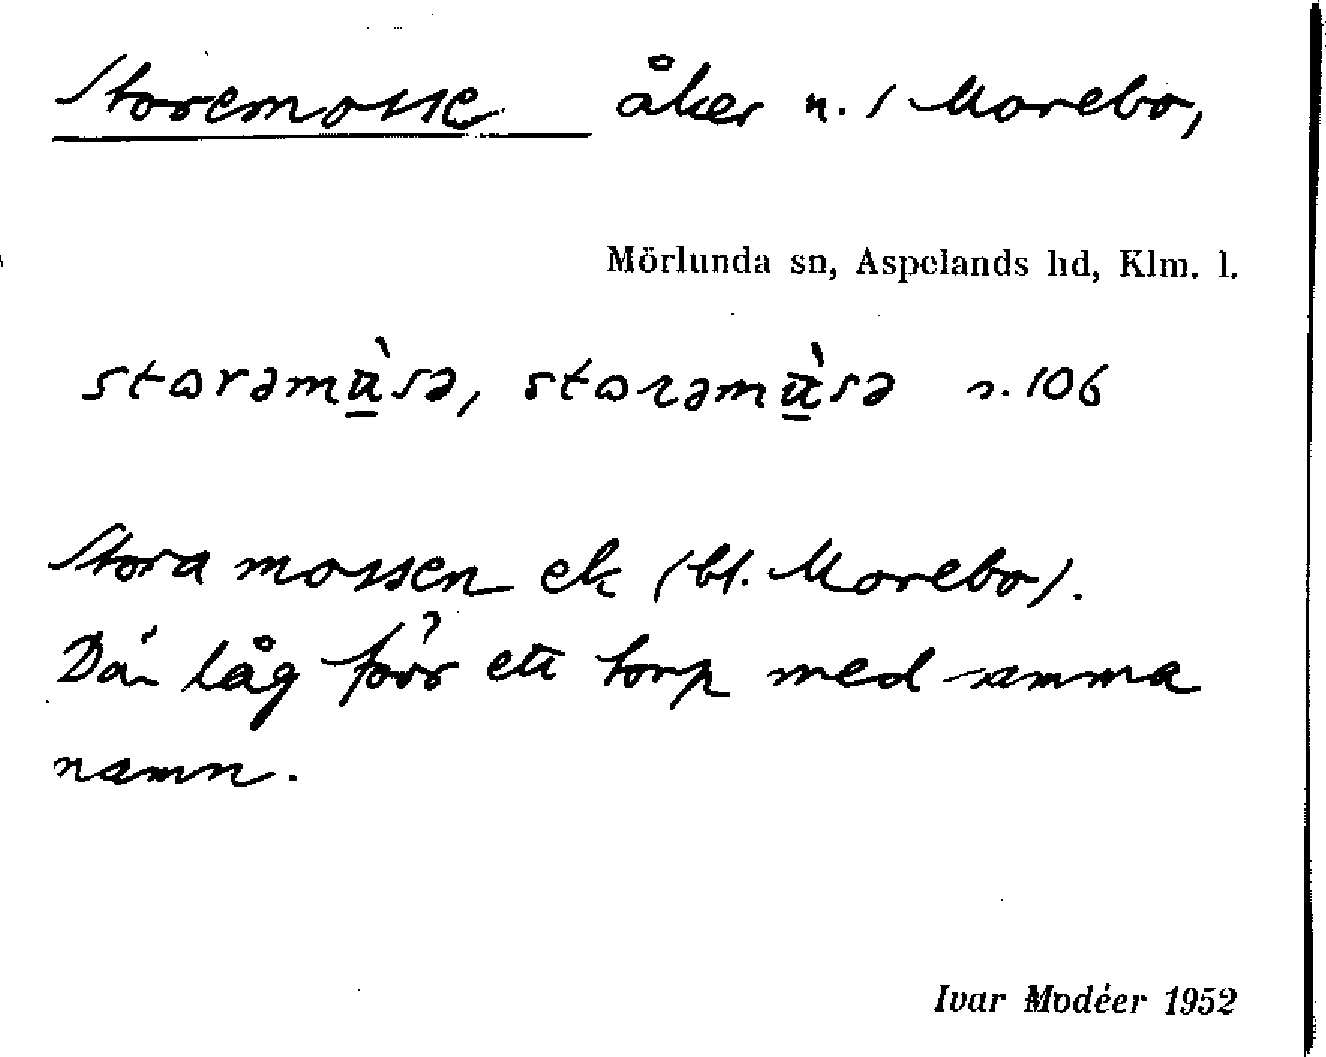 Storemosse åker n. / Morebo,
Mörlunda sn, Aspelands hd, Klm. l.
storəmùsə, storəmùsə s. 106
Stora mossen ek (bl. Morebo).
Där låg förr ett torp med samma
namn.
Ivar Modéer 1952